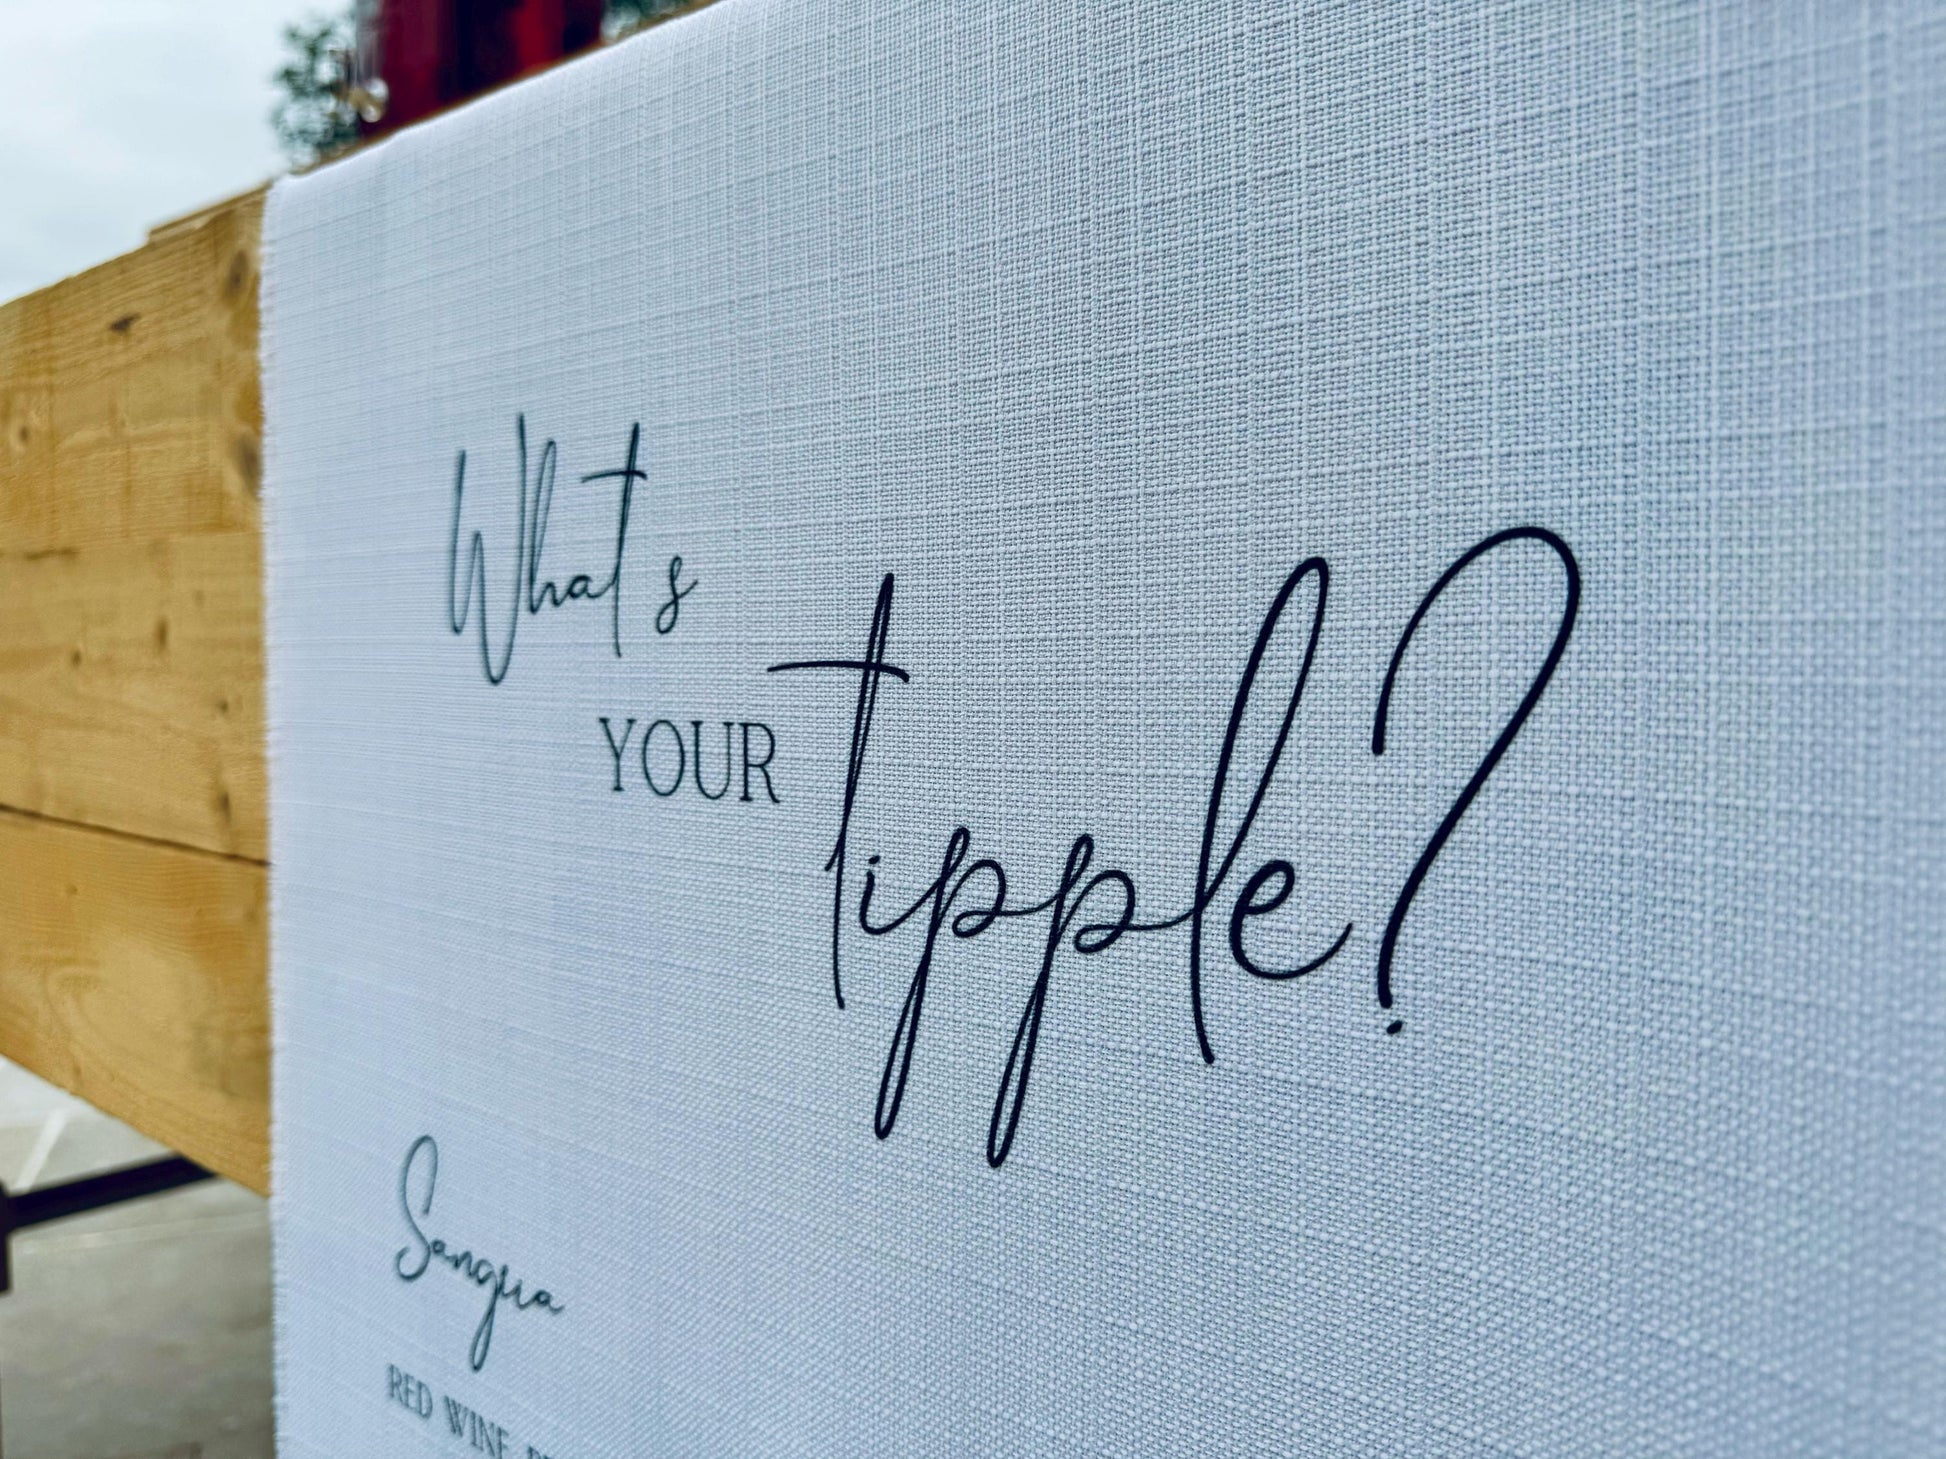 What's
YOUR
tipple?
Sangria
RED WINE